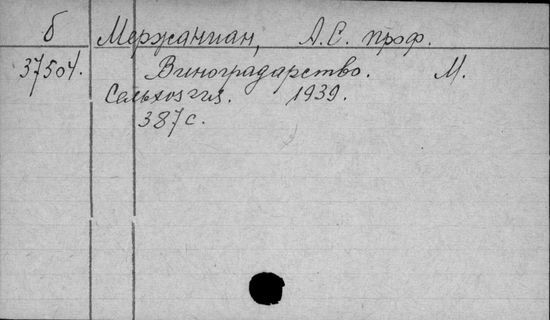 б Мержаниан, А.С. проф.
37504. Виноградарство. М.
Сельхозгиз. 1939.
387 с.